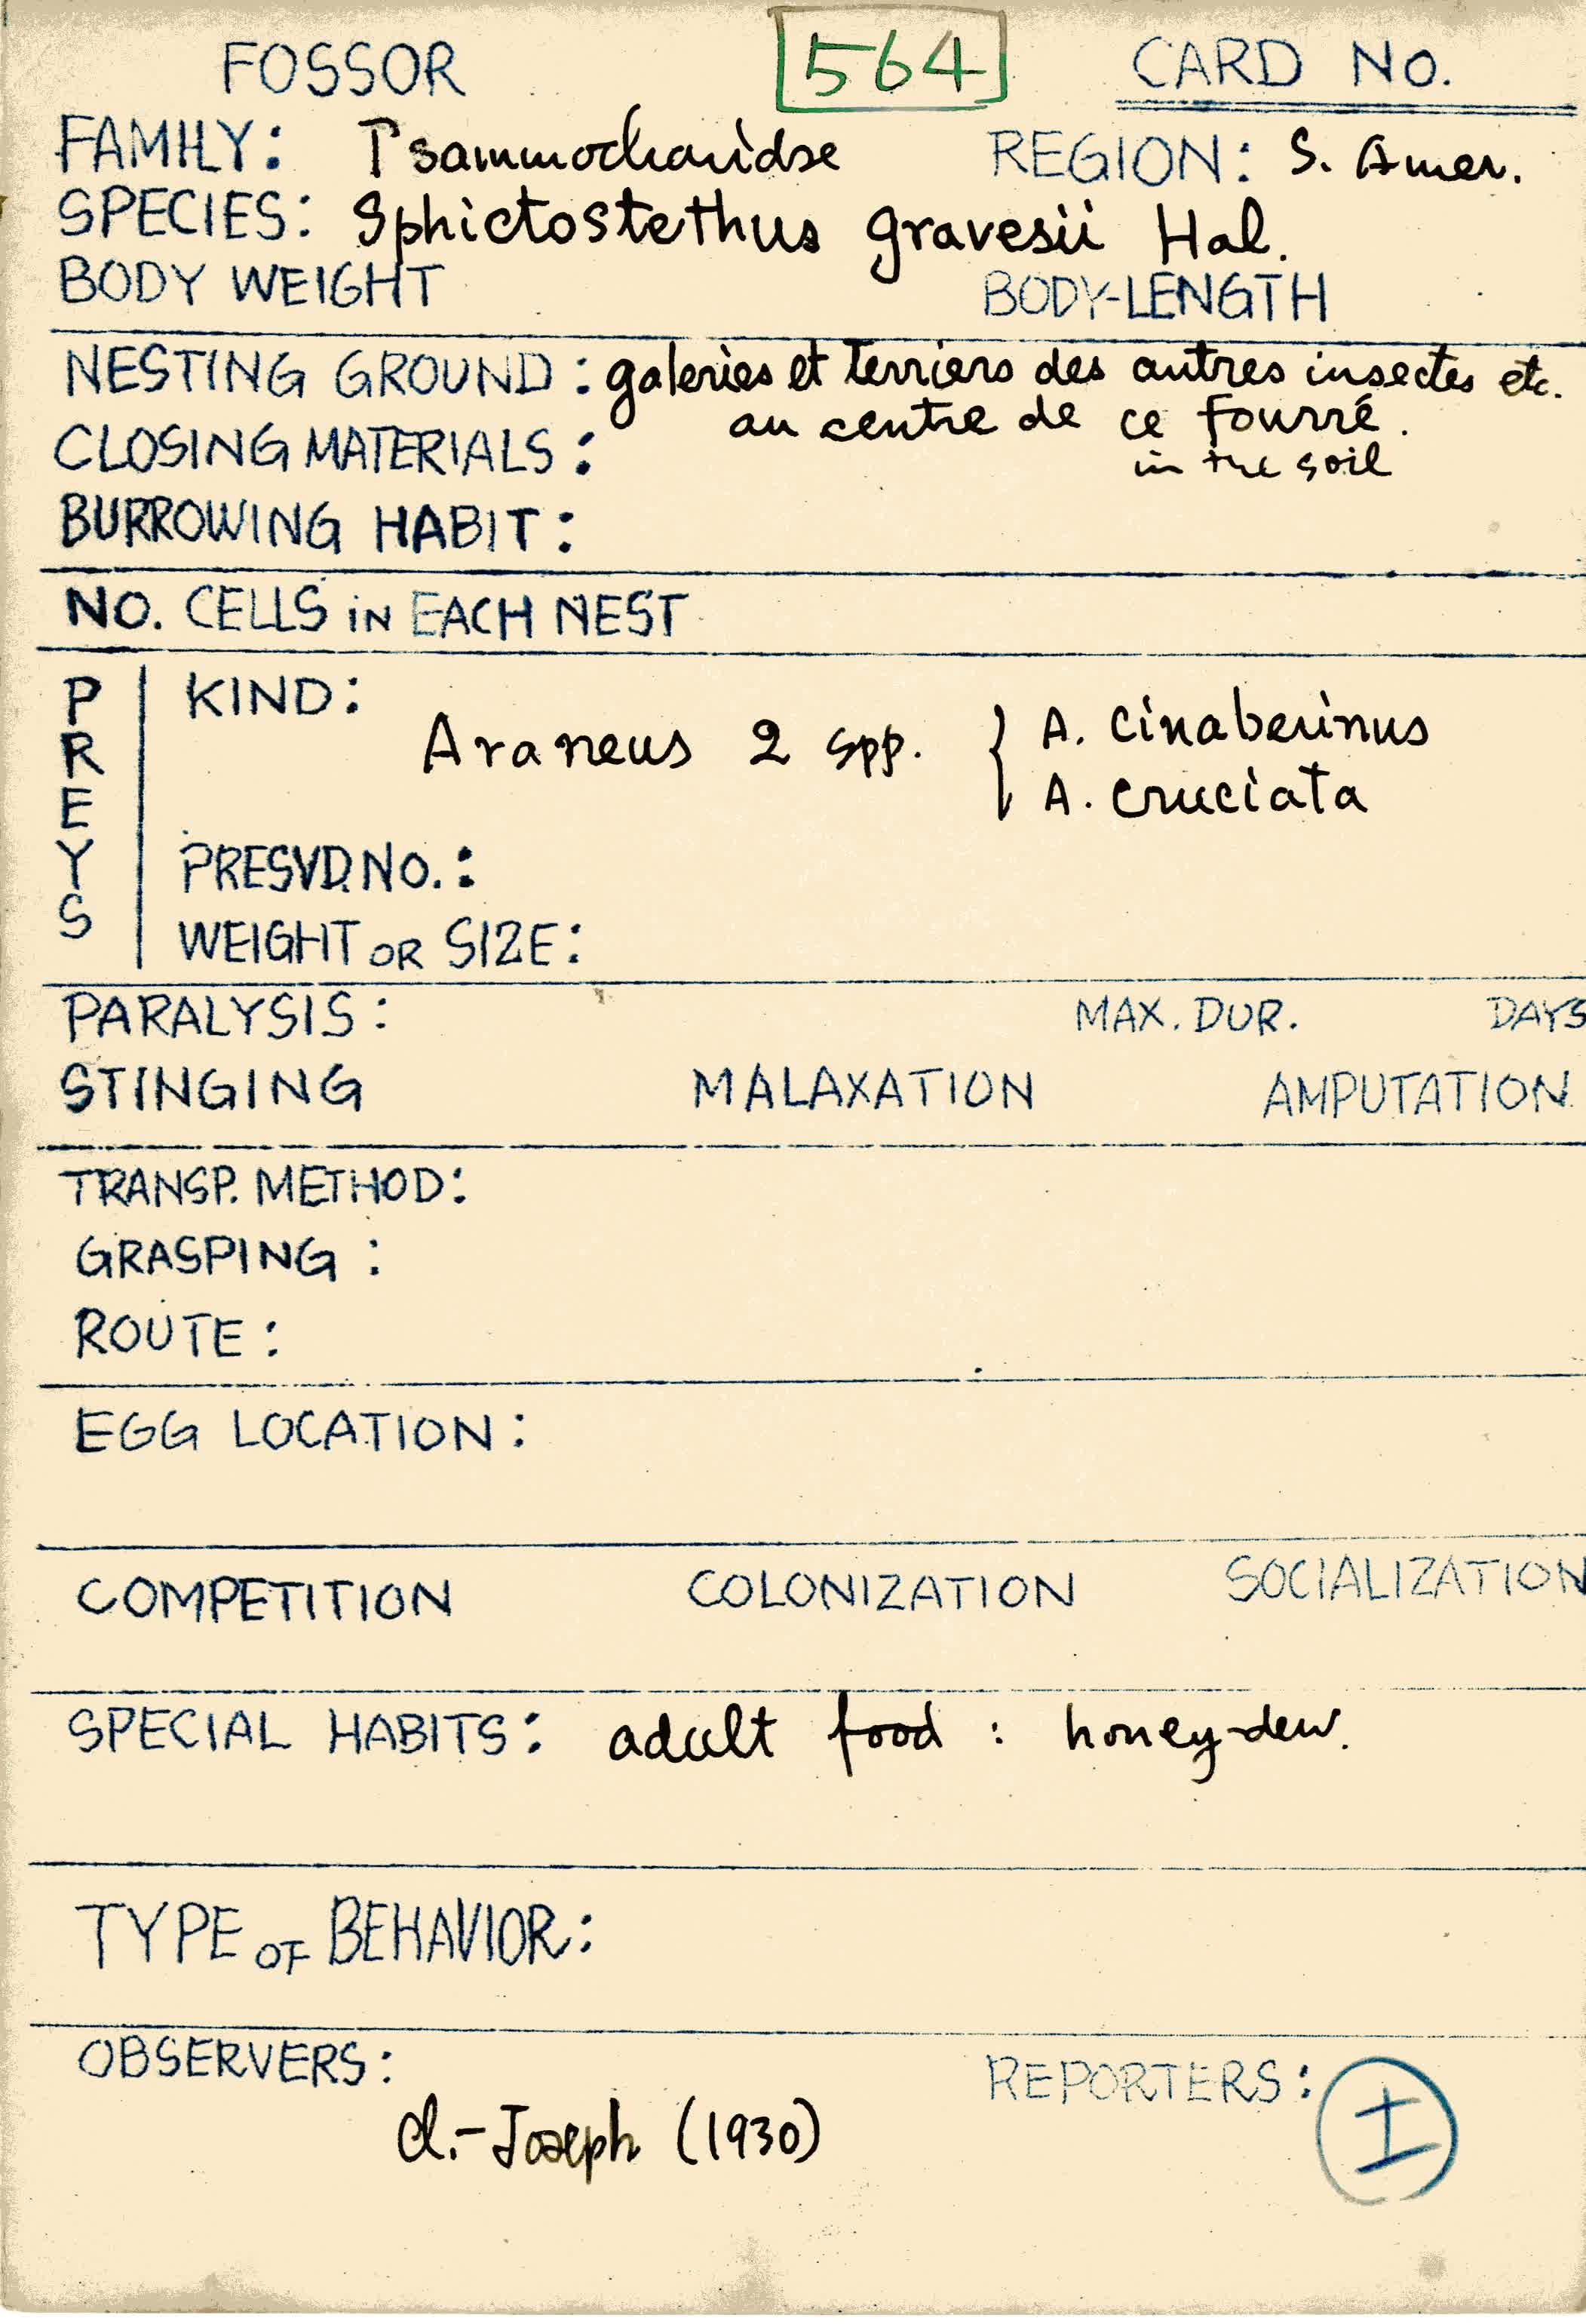 FOSSOR 564 CARD No.
FAMILY: Psammocharidae REGION: S. Amer.
SPECIES: Sphictostethus gravesii Hal.
BODY WEIGHT BODY-LENGTH
NESTING GROUND: galeries et terriers des autres insectes etc.
au centre de ce fourré.
CLOSING MATERIALS: in the soil
BURROWING HABIT:
NO. CELLS IN EACH NEST
PREYS
KIND:
Araneus 2 spp. { A. cinaberinus
A. cruciata
PRESVD. NO.:
WEIGHT OR SIZE:
PARALYSIS: MAX. DUR. DAYS
STINGING MALAXATION AMPUTATION
TRANSP. METHOD:
GRASPING:
ROUTE:
EGG LOCATION:
COMPETITION COLONIZATION SOCIALIZATION
SPECIAL HABITS: adult food: honey-dew.
TYPE OF BEHAVIOR:
OBSERVERS: REPORTERS: I
Cl.-Joseph (1930)